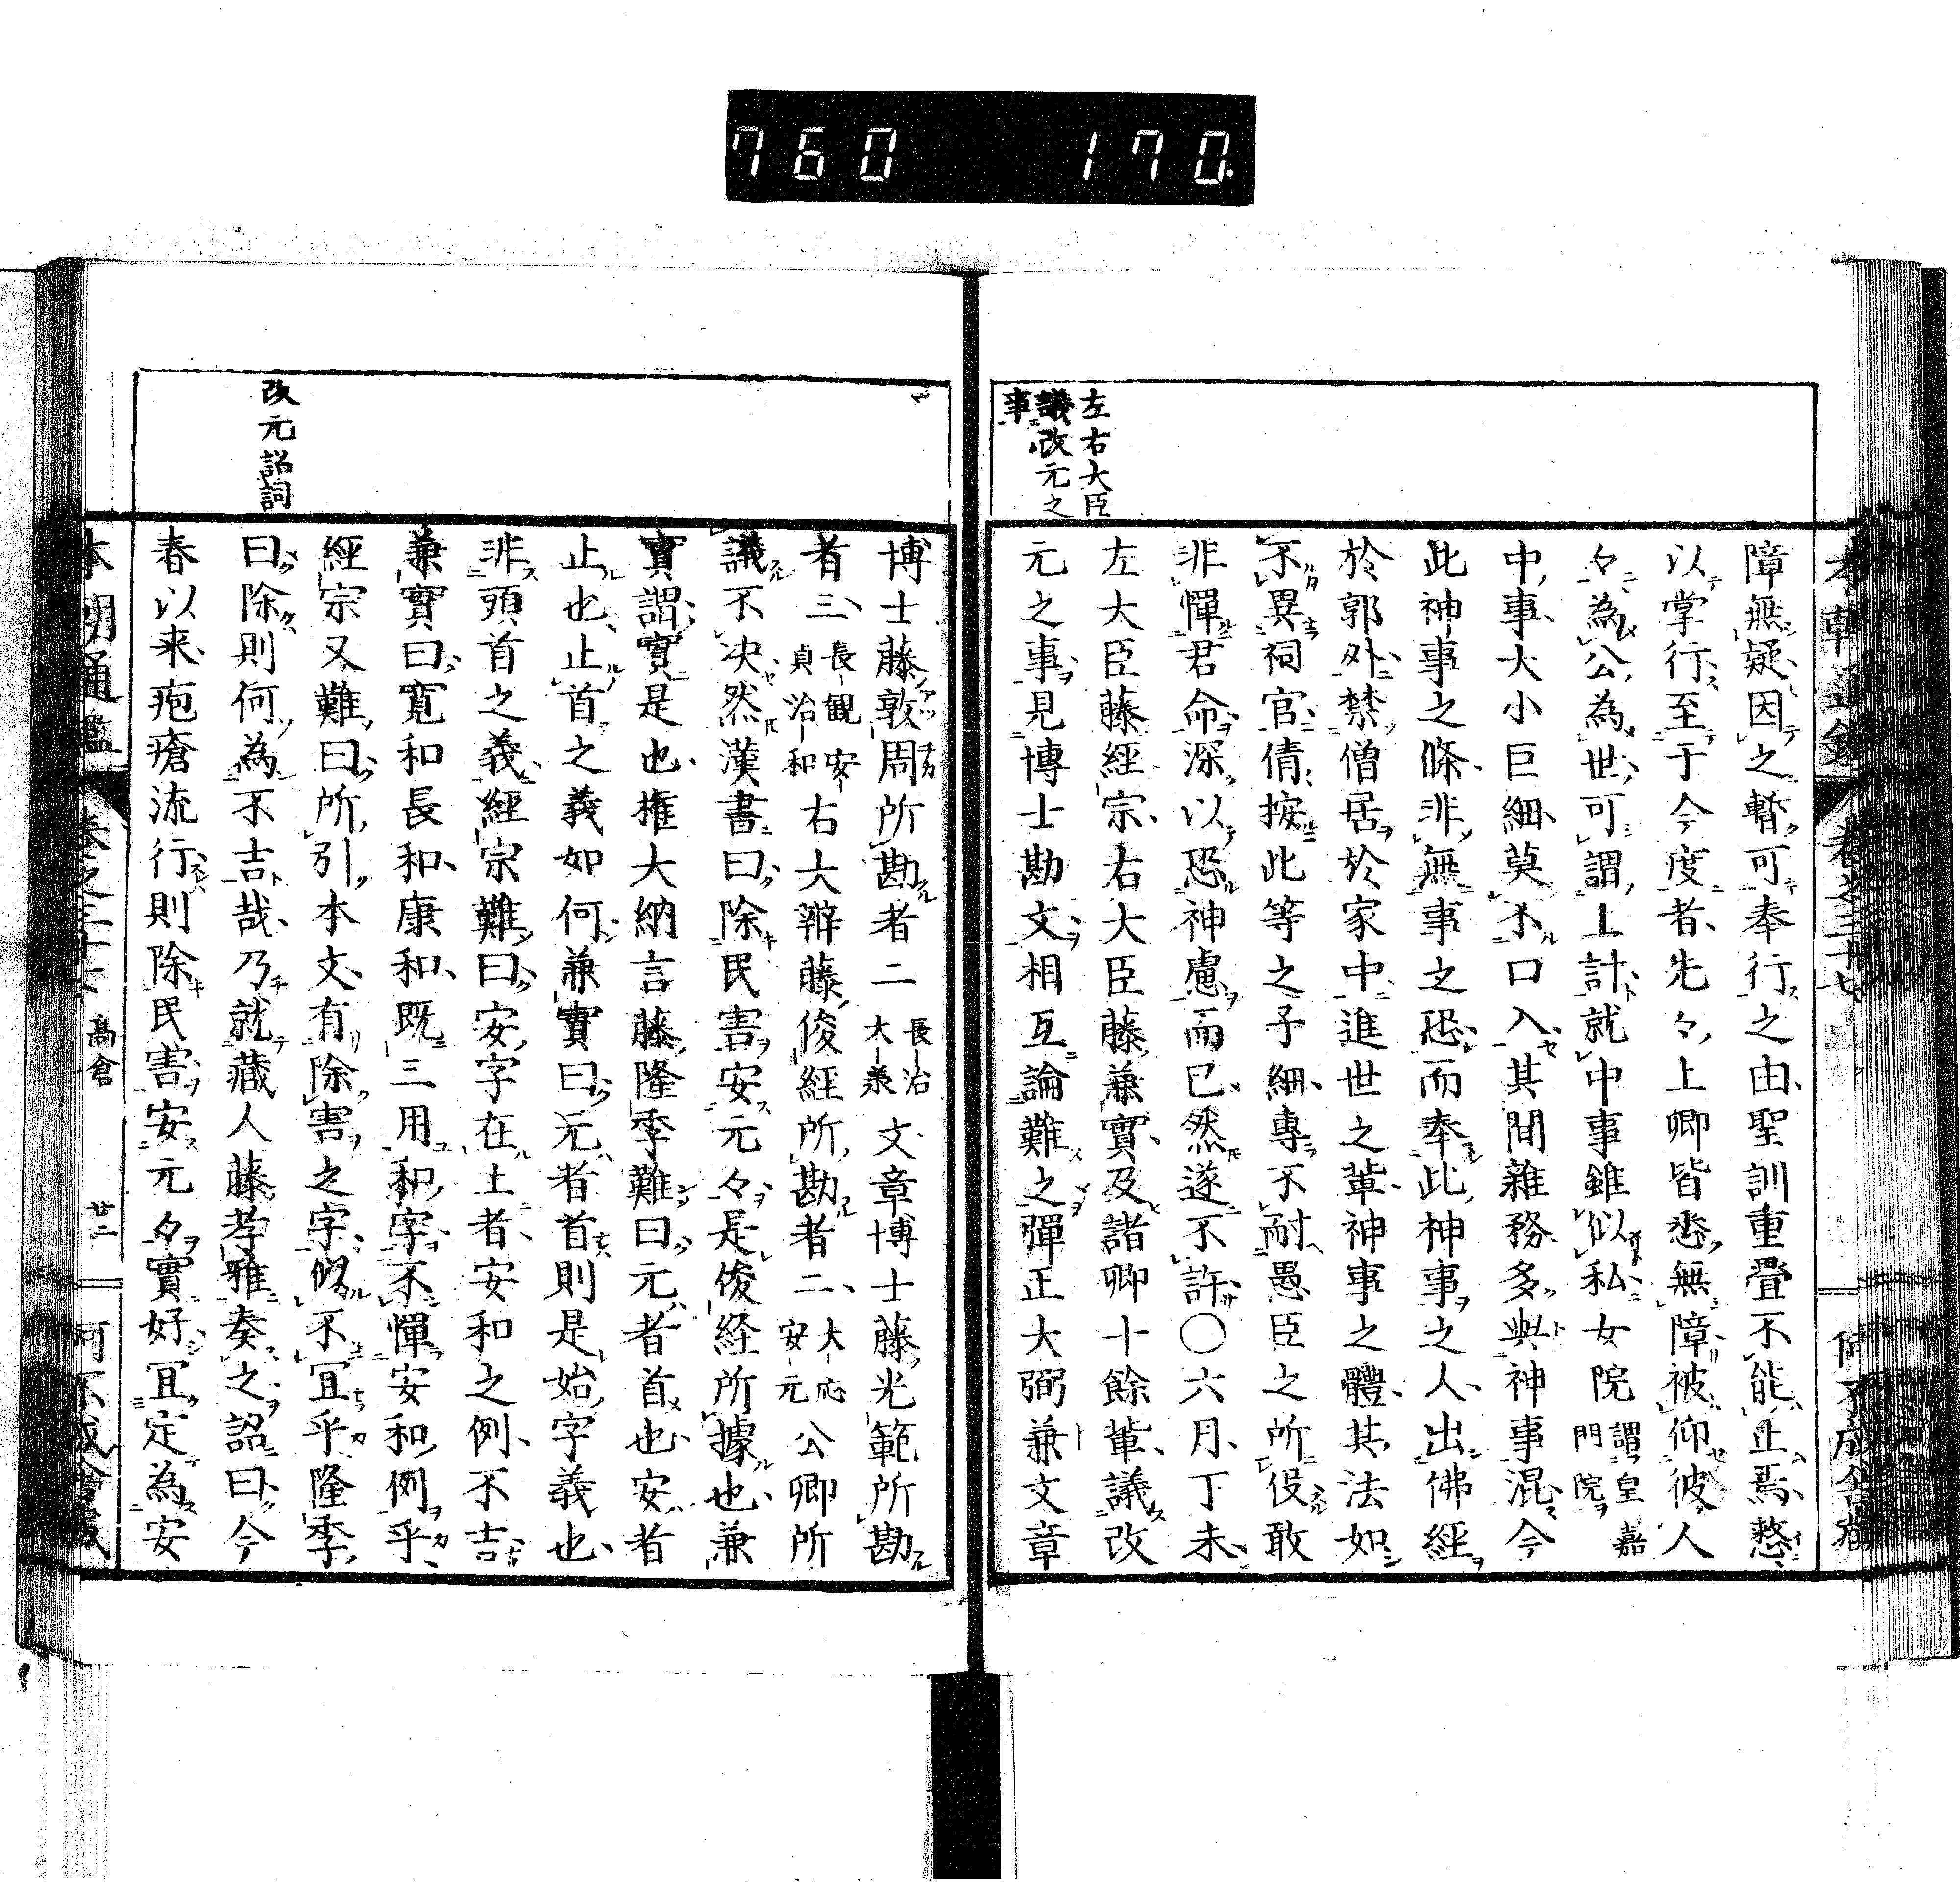 760 170.
左右大臣
議改元之
事
障無疑因之暫可奉行之由聖訓重疊不能止焉愁
以掌行至于今度者先々上卿皆悉無障被仰彼人
々為公為世可謂上計就中事雖似私女院謂皇嘉門院
中事大小巨細莫不口入其間雜務多與神事混今
此神事之條非無事之恐而奉此神事之人出佛經
於郭外禁僧居於家中進世之輩神事之體其法如
不異祠官倩按此等之子細專不耐愚臣之所役敢
非憚君命深以恐神慮而已然遂不許〇六月丁未
左大臣藤經宗右大臣藤兼實及諸卿十餘輩議改
元之事見博士勘文相互論難之彈正大弼兼文章
博士藤敦周所勘者二長治大承文章博士藤光範所勘
者三長観安貞治和右大辨藤俊經所勘者二大応安元公卿所
議不決然漢書曰除民害安元々是俊経所據也兼
實謂實是也権大納言藤隆季難曰元者首也安者
止也止首之義如何兼實曰元者首則是始字義也
非頭首之義經宗難曰安字在上者安和之例不吉
兼實曰寬和長和康和既三用和字不憚安和例乎
經宗又難曰所引本文有除害之字似不宜乎隆季
曰除則何為不吉哉乃就藏人藤孝雅奏之詔曰今
春以来疱瘡流行則除民害安元々實好宜定為安
改元詔詞
本朝通鑑 卷之三十七 高倉 廿二